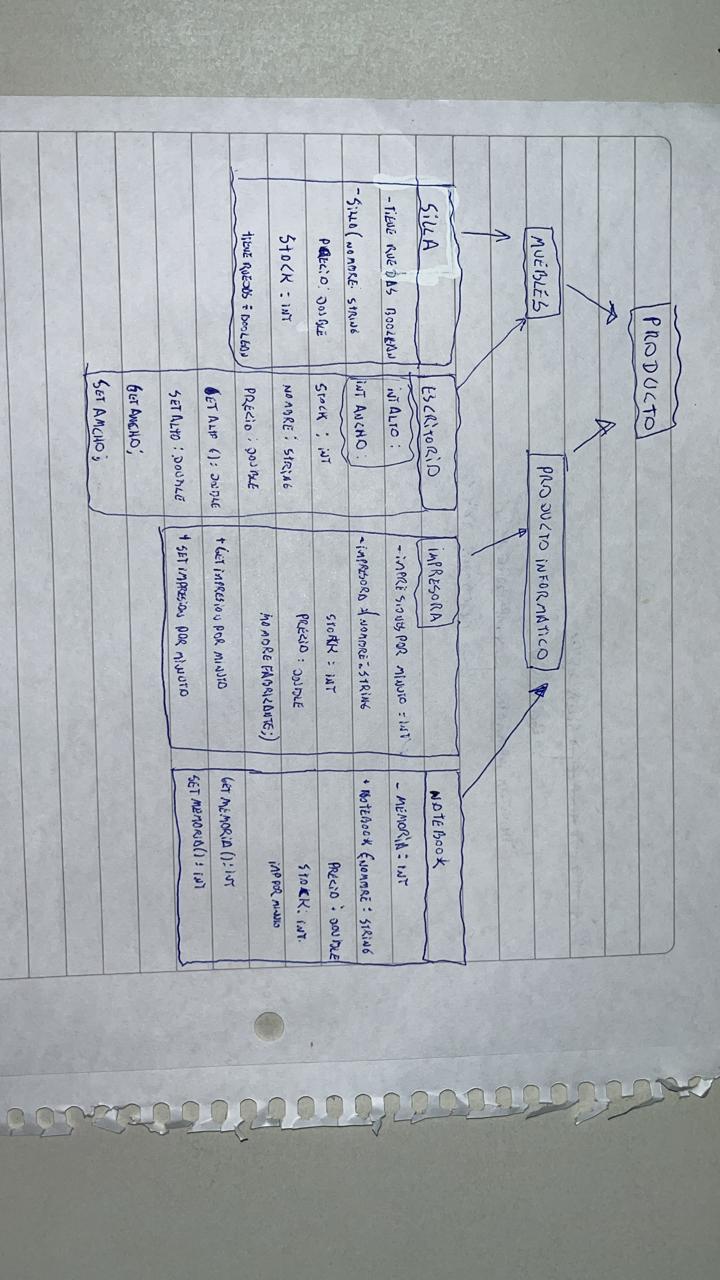 PRODUCTO
MUEBLES
PRODUCTO INFORMÁTICO
SILLA
- TIENE RUEDAS BOOLEAN
- SILLA (NOMBRE: STRING
PRECIO: DOUBLE
STOCK: INT
TIENE RUEDAS = BOOLEAN
ESCRITORIO
INT ALTO;
INT ANCHO;
STOCK ; INT
NOMBRE ; STRING
PRECIO ; DOUBLE
GET ALTO () : DOUBLE
SET ALTO : DOUBLE
GET ANCHO;
SET ANCHO;
IMPRESORA
- IMPRESIONES POR MINUTO = INT
- IMPRESORA (NOMBRE = STRING
STOCK = INT
PRECIO : DOUBLE
NOMBRE FABRICANTE;)
+ GET IMPRESION POR MINUTO
+ SET IMPRESION POR MINUTO
NOTEBOOK
- MEMORIA = INT
+ NOTEBOOK (NOMBRE : STRING
PRECIO : DOUBLE
STOCK : INT.
IMP POR MINUTO
GET MEMORIA () : INT
SET MEMORIA () : INT